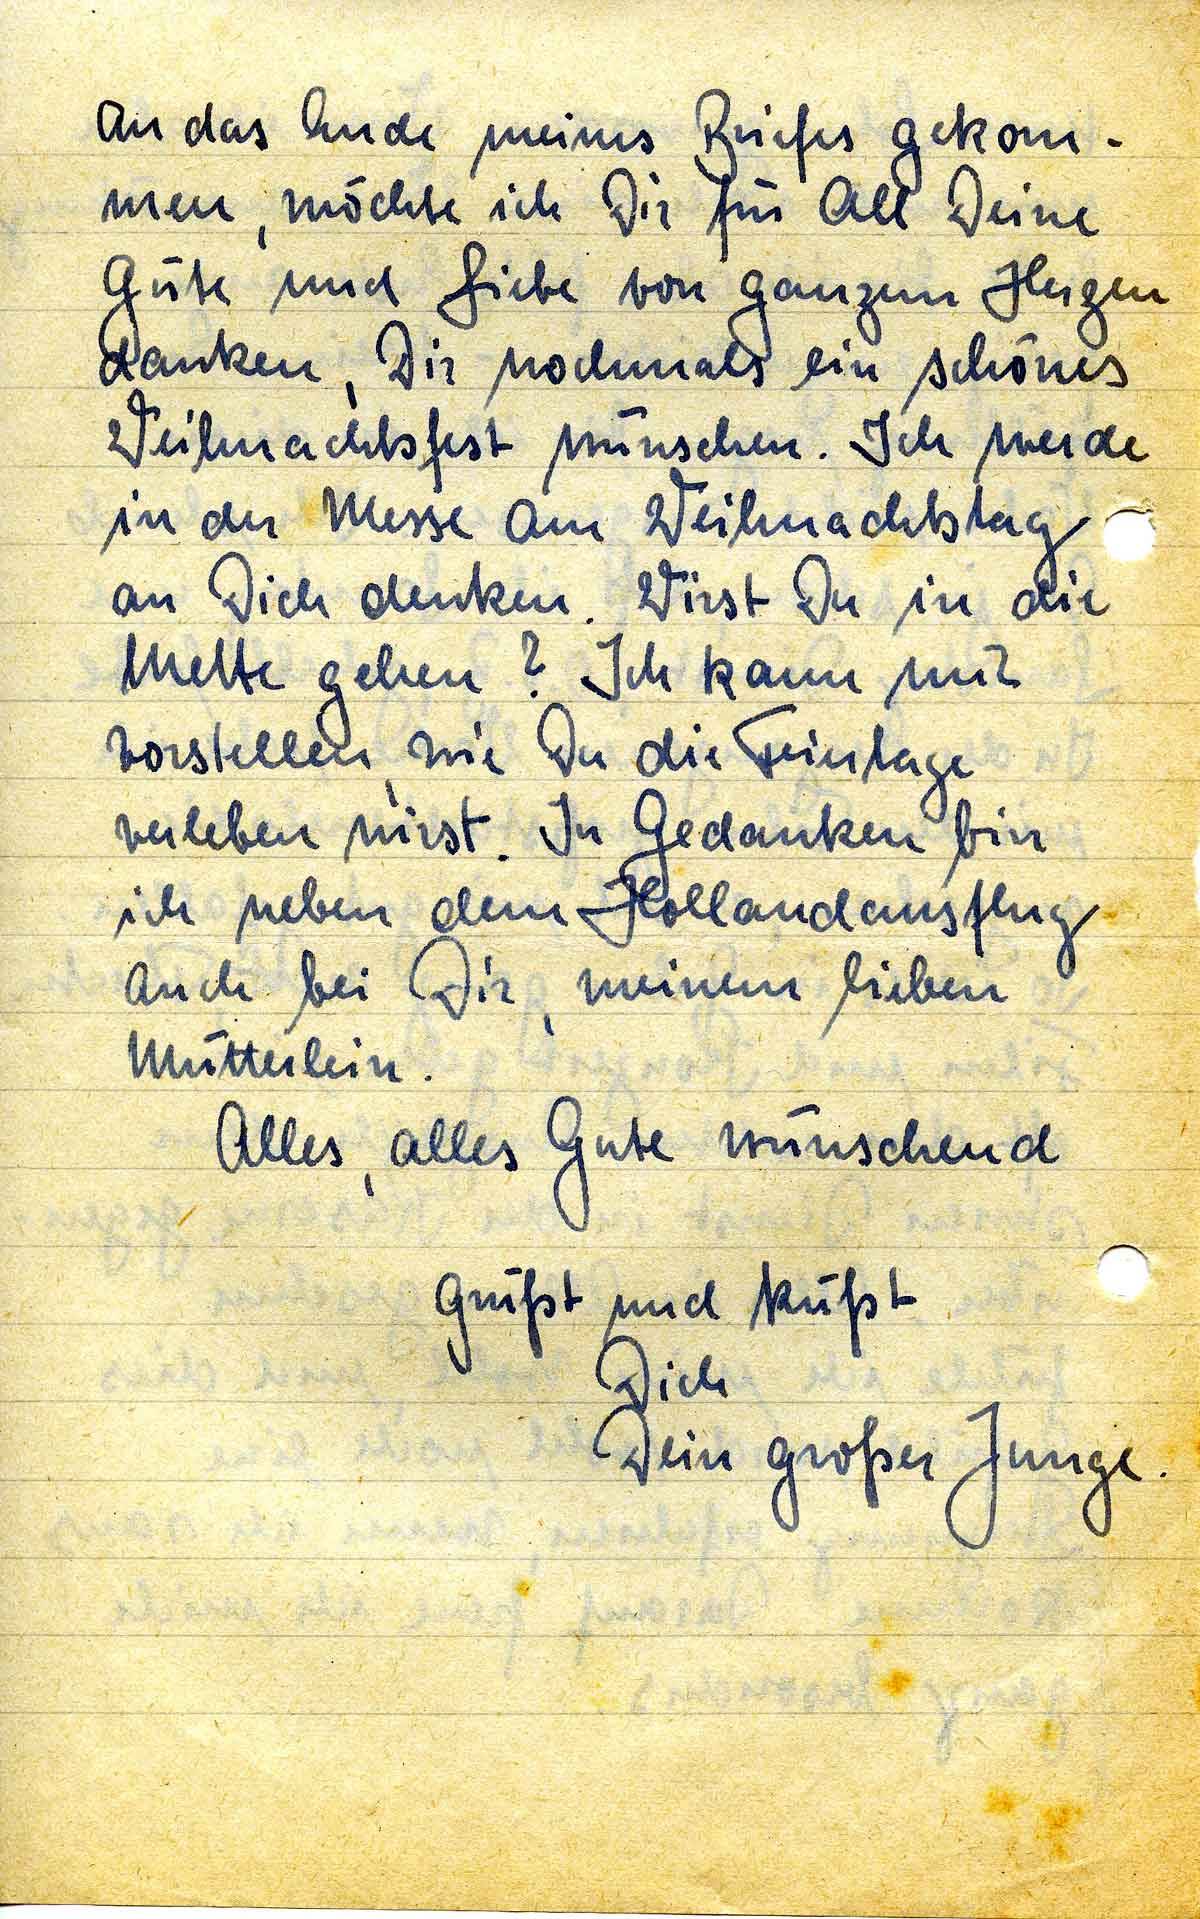 An das Ende meines Briefes gekom-
men, möchte ich Dir für All Deine
Güte und Liebe von ganzem Herzen
danken, Dir nochmals ein schönes
Weihnachtsfest wünschen. Ich werde
in der Messe am Weihnachtstag
an Dich denken. Wirst Du in die
Mette gehen? Ich kann mir
vorstellen, wie Du die Feiertage
verleben wirst. In Gedanken bin
ich neben dem Hollandausflug
auch bei Dir, meinem lieben
Mütterlein.
Alles, alles Gute wünschend
grüßt und küßt
Dich
Dein großer Junge.